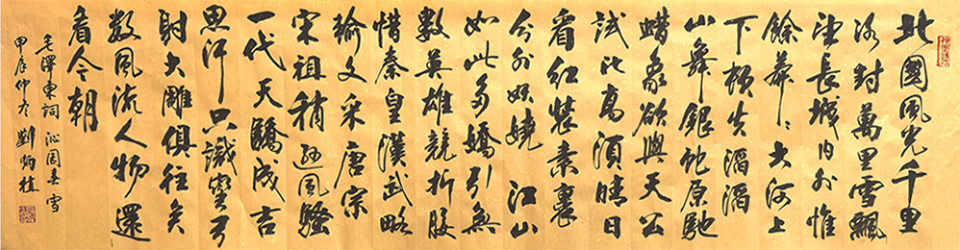 北國風光千里
冰封萬里雪飄
望長城內外惟
餘莽〻大河上
下頓失滔滔
山舞銀蛇原馳
蠟象欲與天公
試比高須晴日
看紅裝素裹
分外妖嬈 江山
如此多嬌引無
數英雄競折腰
惜秦皇漢武略
輸文采唐宗
宋祖稍遜風騷
一代天驕成吉
思汗只識彎弓
射大雕俱往矣
數風流人物還
看今朝
毛澤東詞 沁園春 雪
甲辰仲冬 劉炳植